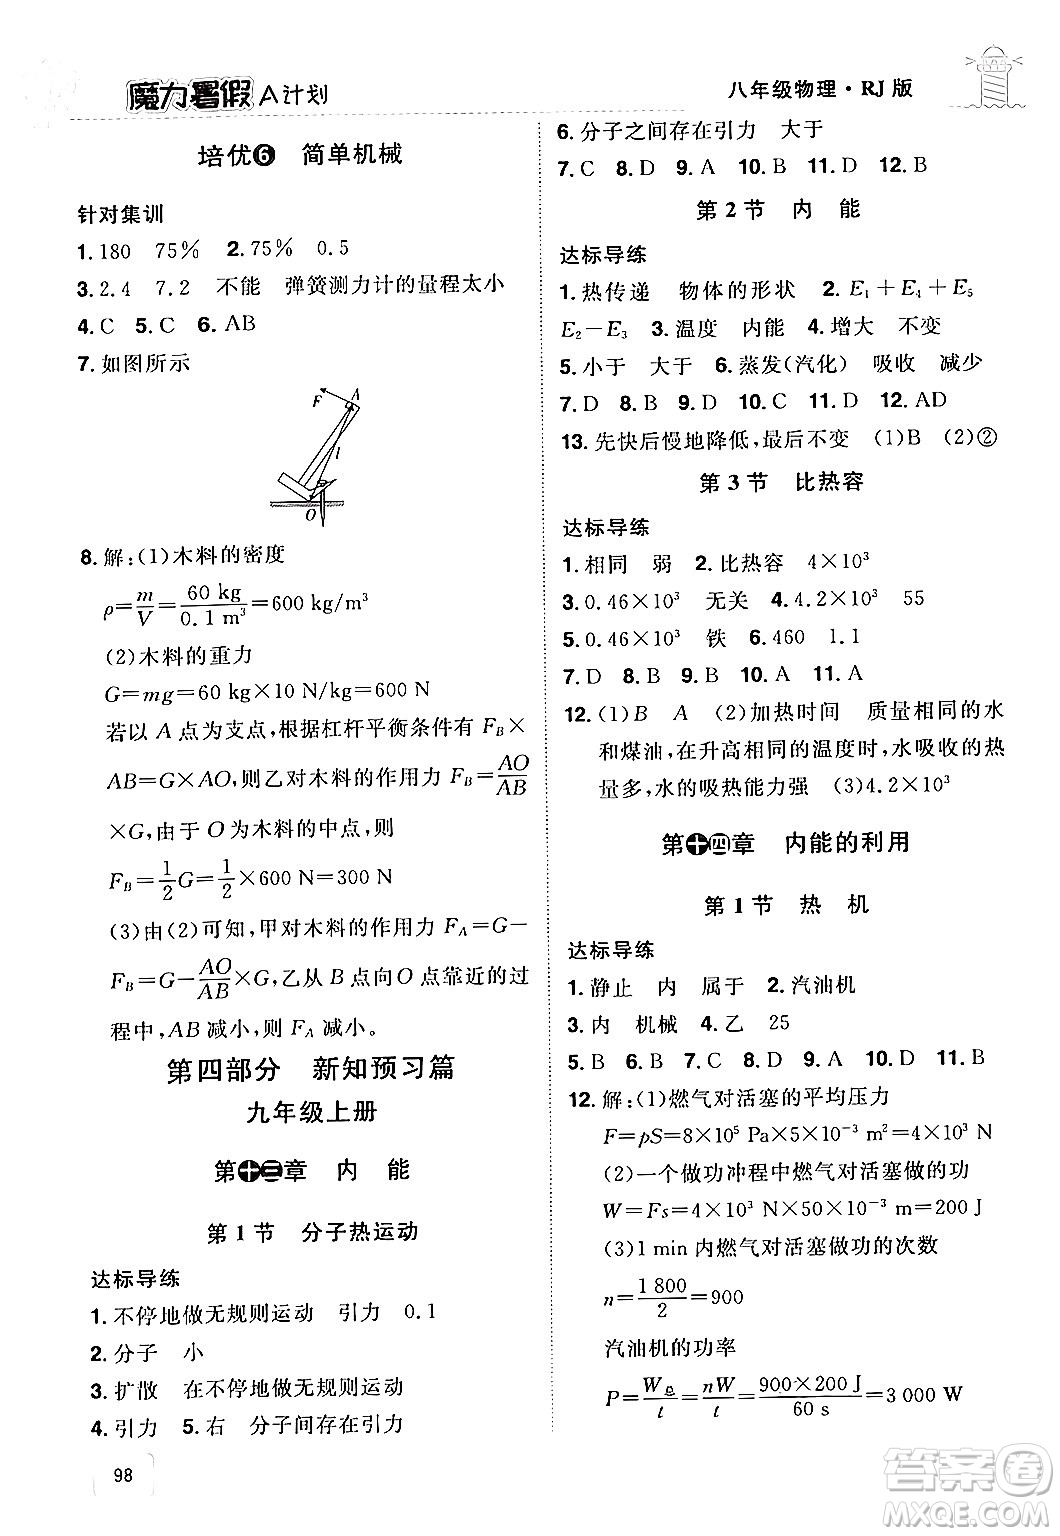 魔力暑假A计划
八年级物理·RJ版
培优❻ 简单机械
针对集训
1.180 75% 2.75% 0.5
3.2.4 7.2 不能 弹簧测力计的量程太小
4.C 5.C 6.AB
7.如图所示
F A
l
O
8.解:(1)木料的密度
ρ=m/V=60 kg/0.1 m³=600 kg/m³
(2)木料的重力
G=mg=60 kg×10 N/kg=600 N
若以 A 点为支点,根据杠杆平衡条件有 F_B×
AB=G×AO,则乙对木料的作用力 F_B=AO/AB
×G,由于 O 为木料的中点,则
F_B=1/2G=1/2×600 N=300 N
(3)由(2)可知,甲对木料的作用力 F_A=G−
F_B=G−AO/AB×G,乙从 B 点向 O 点靠近的过
程中,AB 减小,则 F_A 减小。
第四部分 新知预习篇
九年级上册
第十三章 内 能
第 1 节 分子热运动
达标导练
1.不停地做无规则运动 引力 0.1
2.分子 小
3.扩散 在不停地做无规则运动
4.引力 5.右 分子间存在引力
98
6.分子之间存在引力 大于
7.C 8.D 9.A 10.B 11.D 12.B
第 2 节 内 能
达标导练
1.热传递 物体的形状 2.E₁+E₄+E₅
E₂−E₃ 3.温度 内能 4.增大 不变
5.小于 大于 6.蒸发(汽化) 吸收 减少
7.D 8.D 9.B 10.C 11.D 12.AD
13.先快后慢地降低,最后不变 (1)B (2)②
第 3 节 比热容
达标导练
1.相同 弱 2.比热容 4×10³
3.0.46×10³ 无关 4.4.2×10³ 55
5.0.46×10³ 铁 6.460 1.1
7.D 8.B 9.B 10.A 11.A
12.(1)B A (2)加热时间 质量相同的水
和煤油,在升高相同的温度时,水吸收的热
量多,水的吸热能力强 (3)4.2×10³
第十四章 内能的利用
第 1 节 热 机
达标导练
1.静止 内 属于 2.汽油机
3.内 机械 4.乙 25
5.B 6.B 7.C 8.D 9.C 10.D 11.B
12.解:(1)燃气对活塞的平均压力
F=pS=8×10⁵ Pa×5×10⁻³ m²=4×10³ N
(2)一个做功冲程中燃气对活塞做的功
W=Fs=4×10³ N×50×10⁻³ m=200 J
(3)1 min 内燃气对活塞做功的次数
n=1 800/2=900
汽油机的功率
P=W总/t=nW/t=900×200 J/60 s=3 000 W
答案圈
MXQE.COM